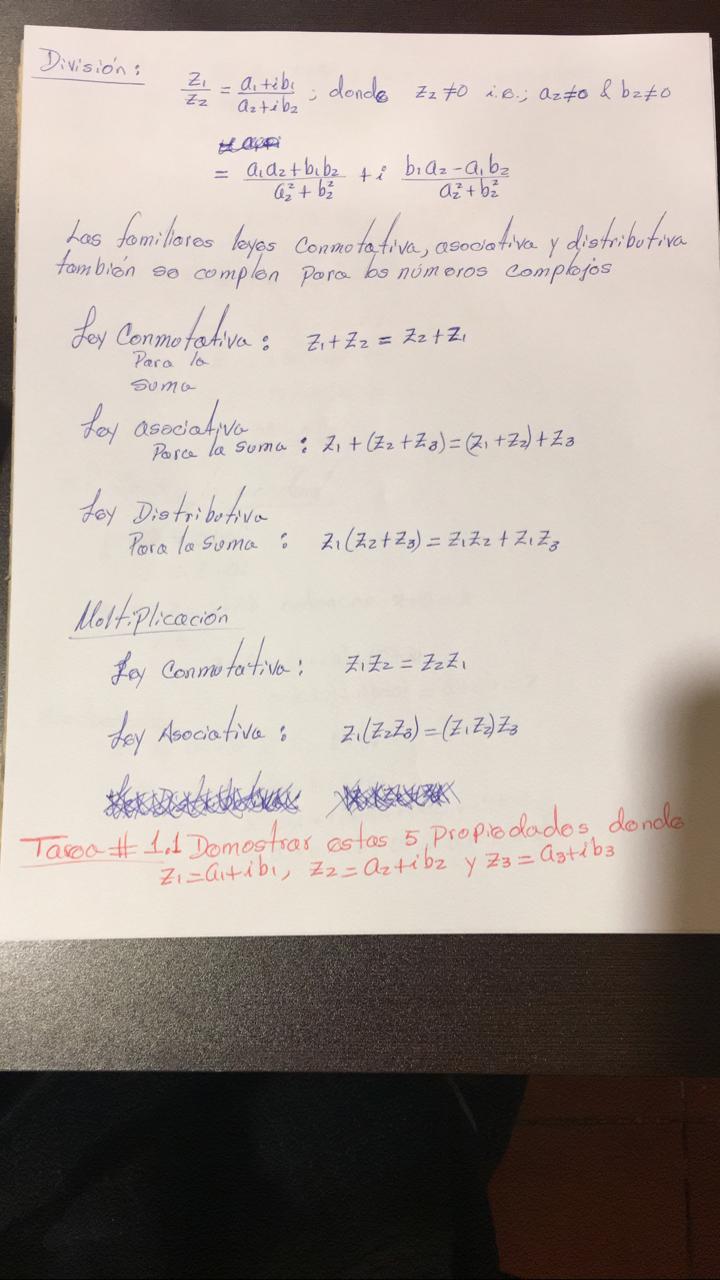 División:
z₁/z₂ = (a₁+ib₁)/(a₂+ib₂) ; donde z₂≠0 i.e.; a₂≠0 & b₂≠0
= (a₁a₂+b₁b₂)/(a₂²+b₂²) + i (b₁a₂-a₁b₂)/(a₂²+b₂²)
Las familiares leyes Conmutativa, asociativa y distributiva
también se cumplen para los números complejos
Ley Conmutativa : z₁+z₂ = z₂+z₁
Para la
suma
Ley asociativa
Para la suma : z₁+(z₂+z₃)=(z₁+z₂)+z₃
Ley Distributiva
Para la suma : z₁(z₂+z₃)=z₁z₂+z₁z₃
Multiplicación
Ley Conmutativa: z₁z₂ = z₂z₁
Ley Asociativa : z₁(z₂z₃)=(z₁z₂)z₃
Tarea # 1.1 Demostrar estas 5 propiedades donde
z₁=a₁+ib₁, z₂=a₂+ib₂ y z₃=a₃+ib₃